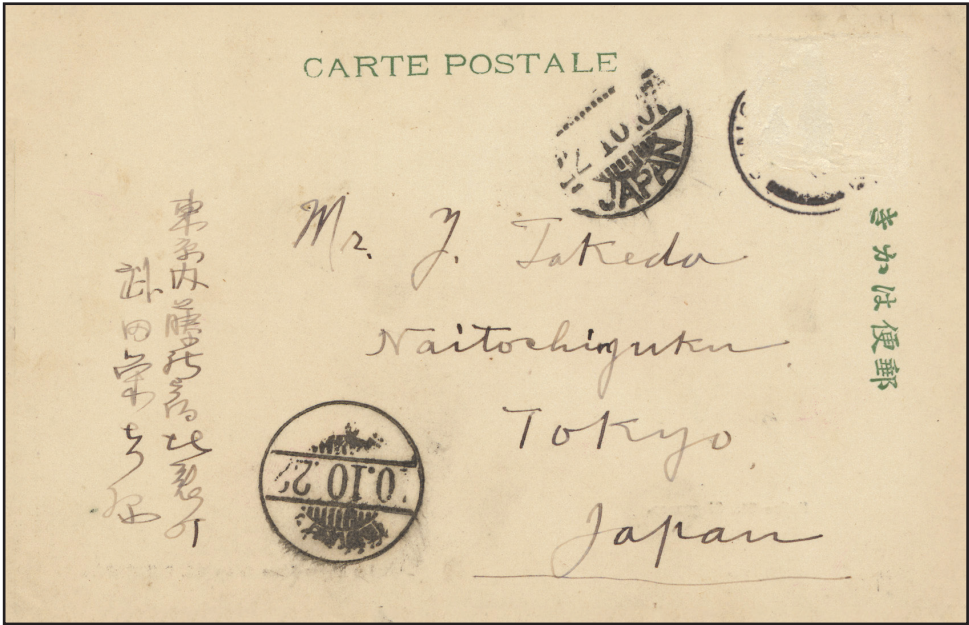 CARTE POSTALE
JAPAN
郵便はかき
Mr. Y. Takeda
Naitoshinjuku
Tokyo
Japan
東京内藤新宿北裏町
武田栄
0.10.2